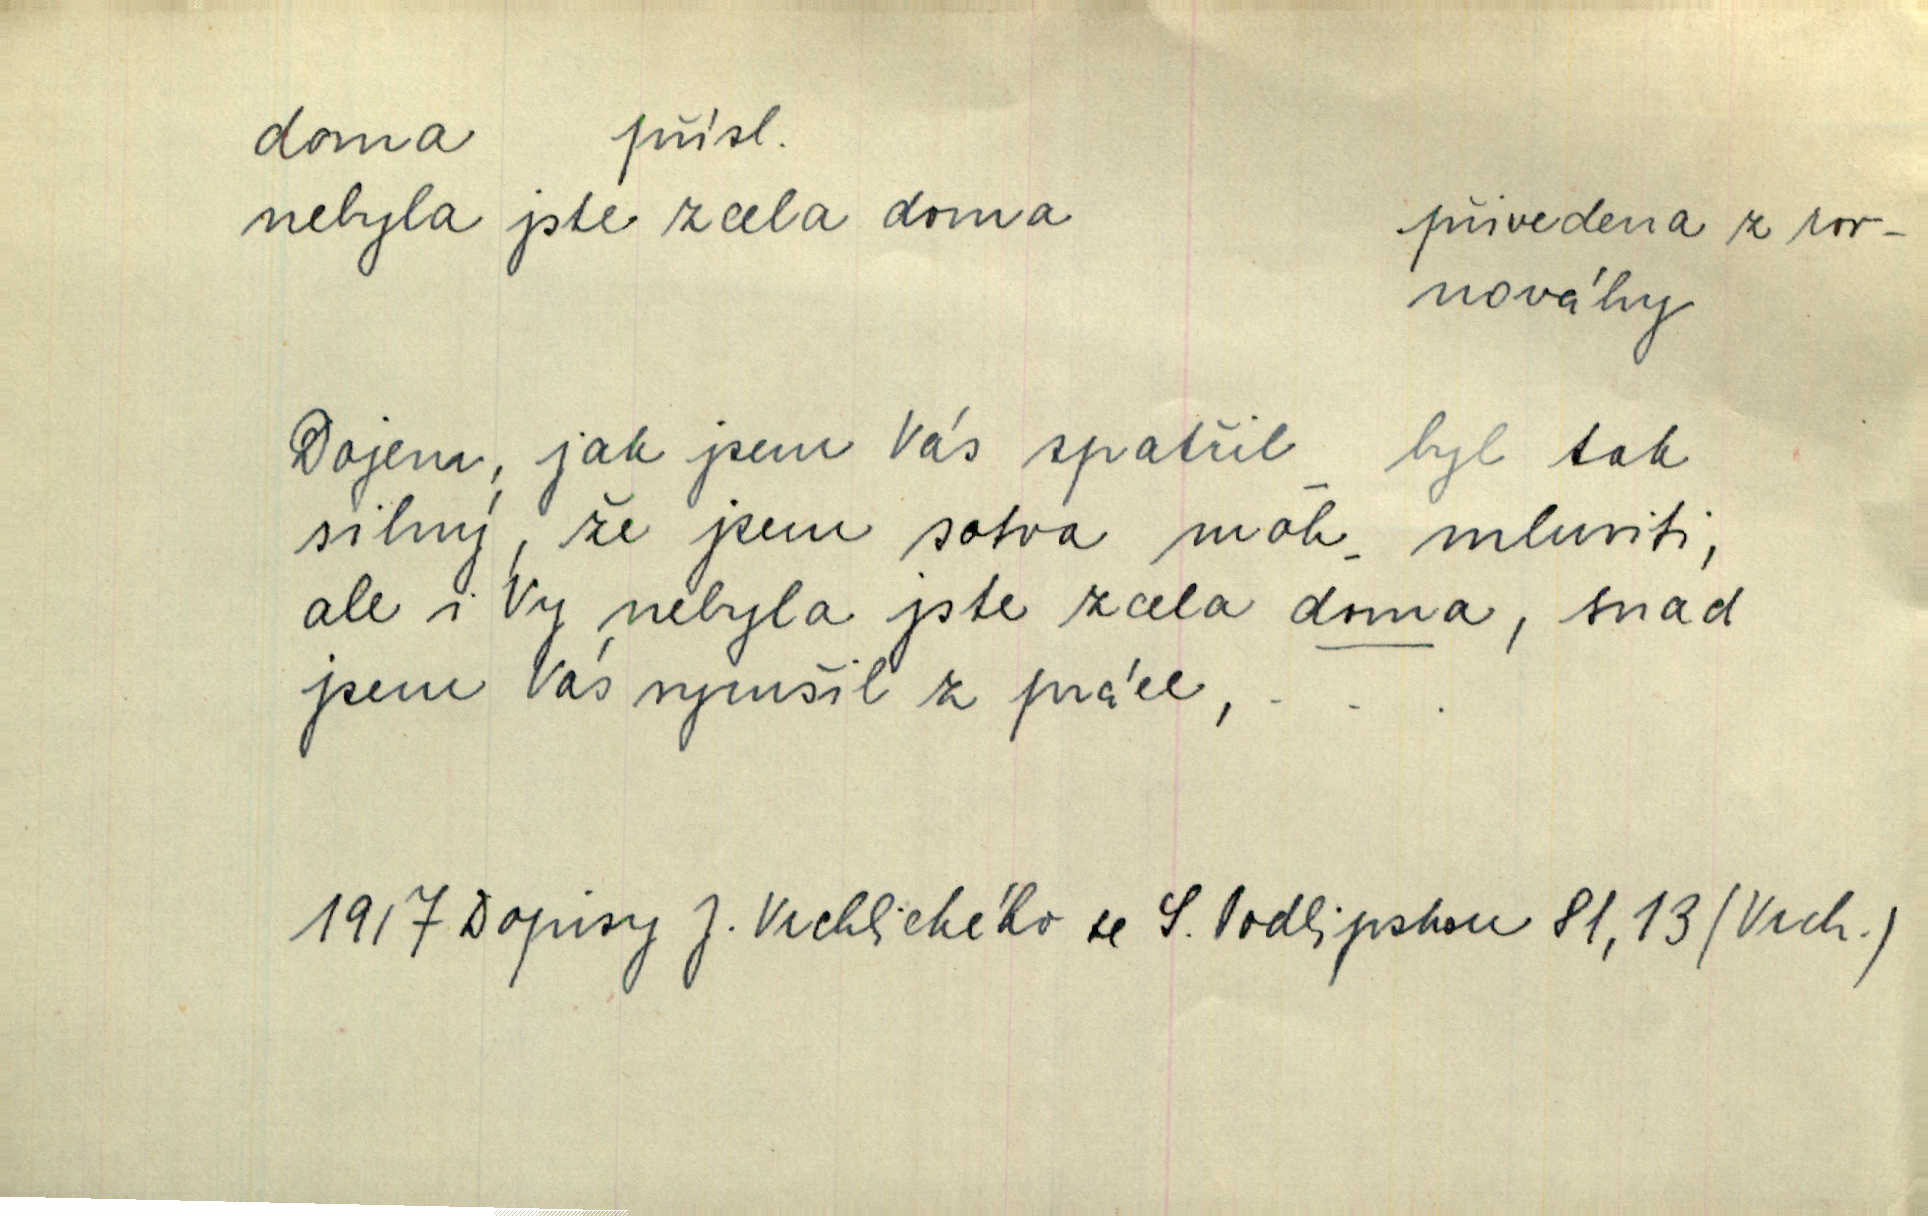 doma přísl.
nebyla jste zcela doma
přivedena z rov-
nováhy
Dojem, jak jsem Vás spatřil byl tak
silný, že jsem sotva moh mluviti,
ale i Vy nebyla jste zcela doma, snad
jsem Vás vyrušil z práce, . . .
1917 Dopisy J. Vrchlického se S. Podlipskou 81,13 (Vrch.)